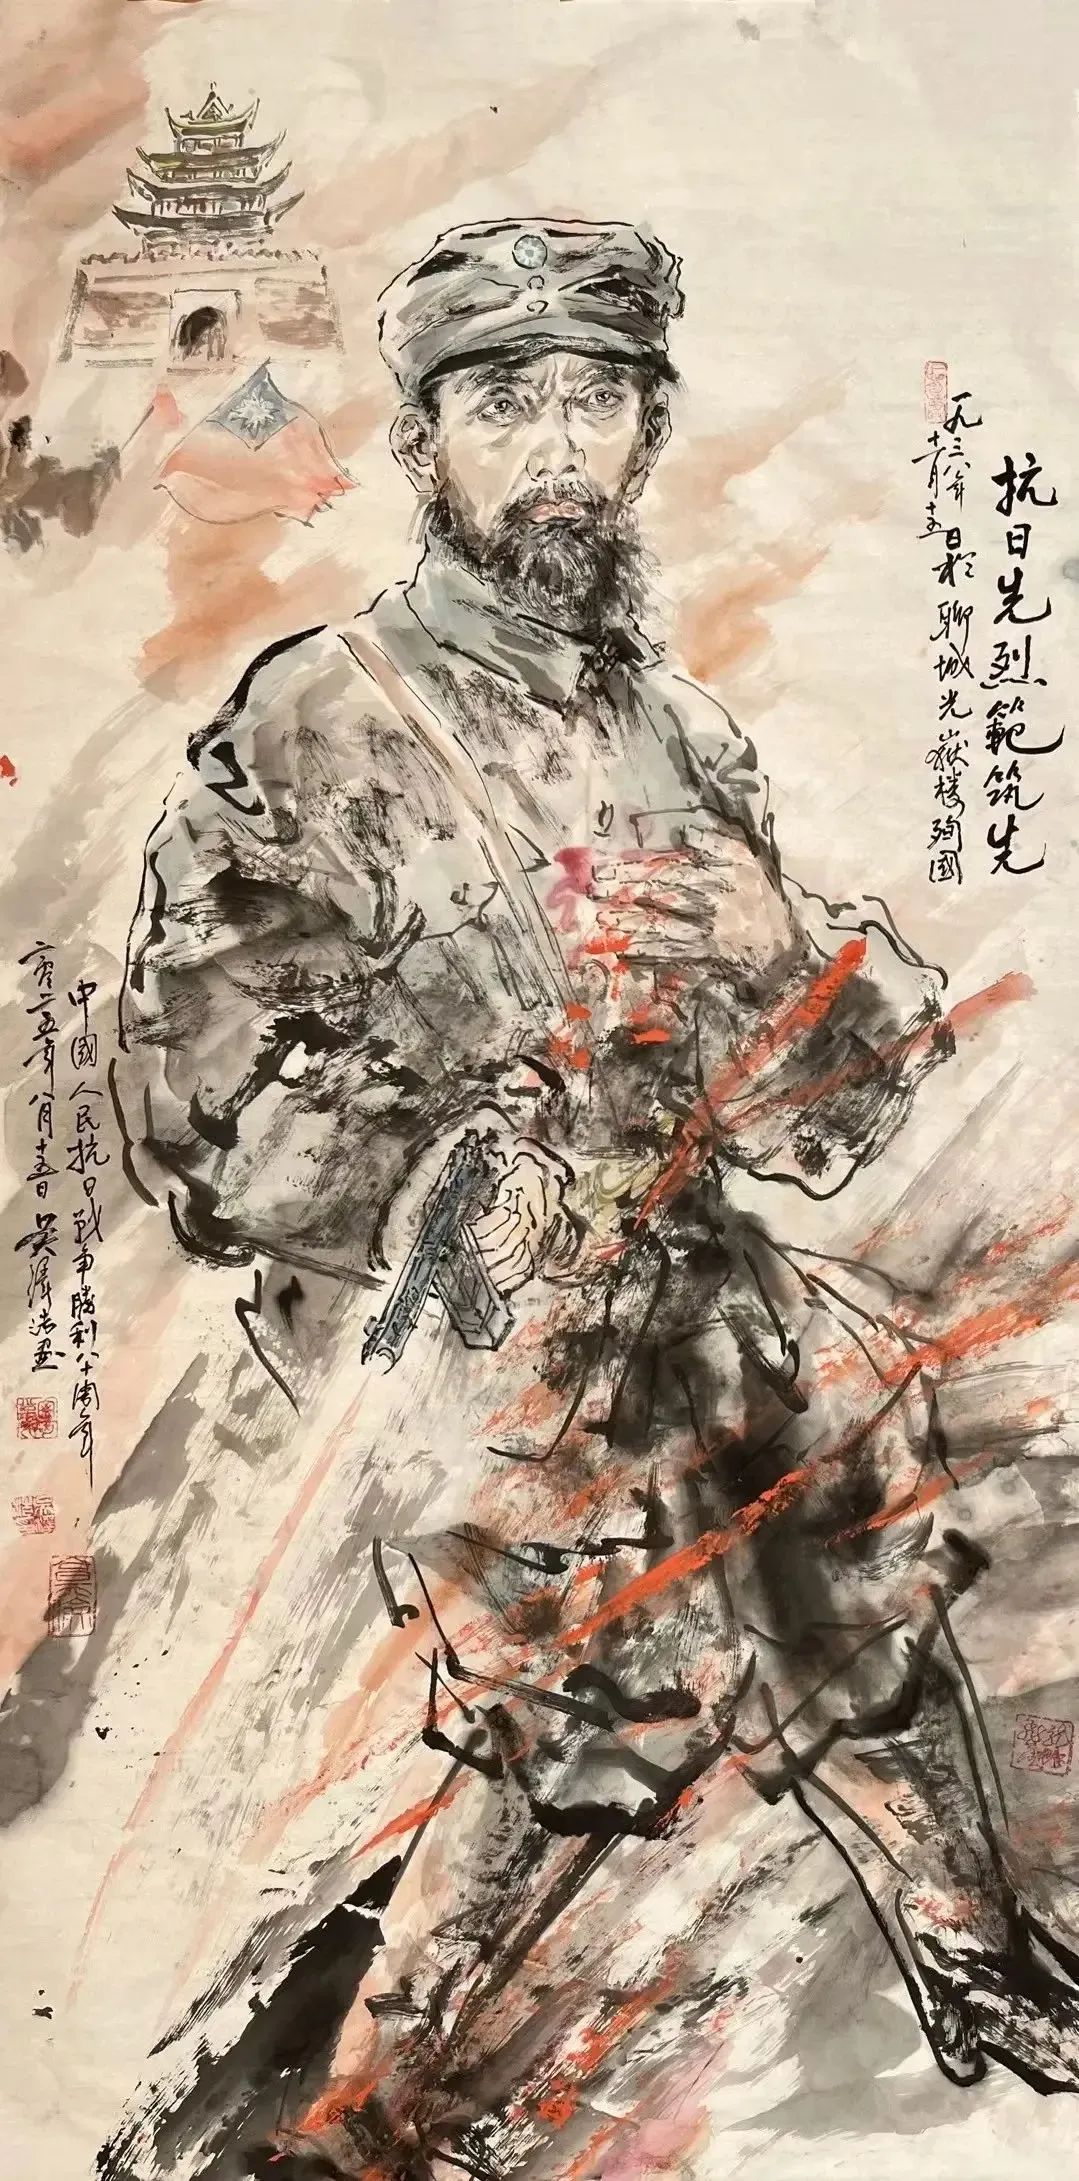 抗日先烈範筑先
一九三八年
十一月十五日於聊城光嶽楼殉國
中國人民抗日戰争勝利八十周年
二零二五年八月十五日吴泽浩画